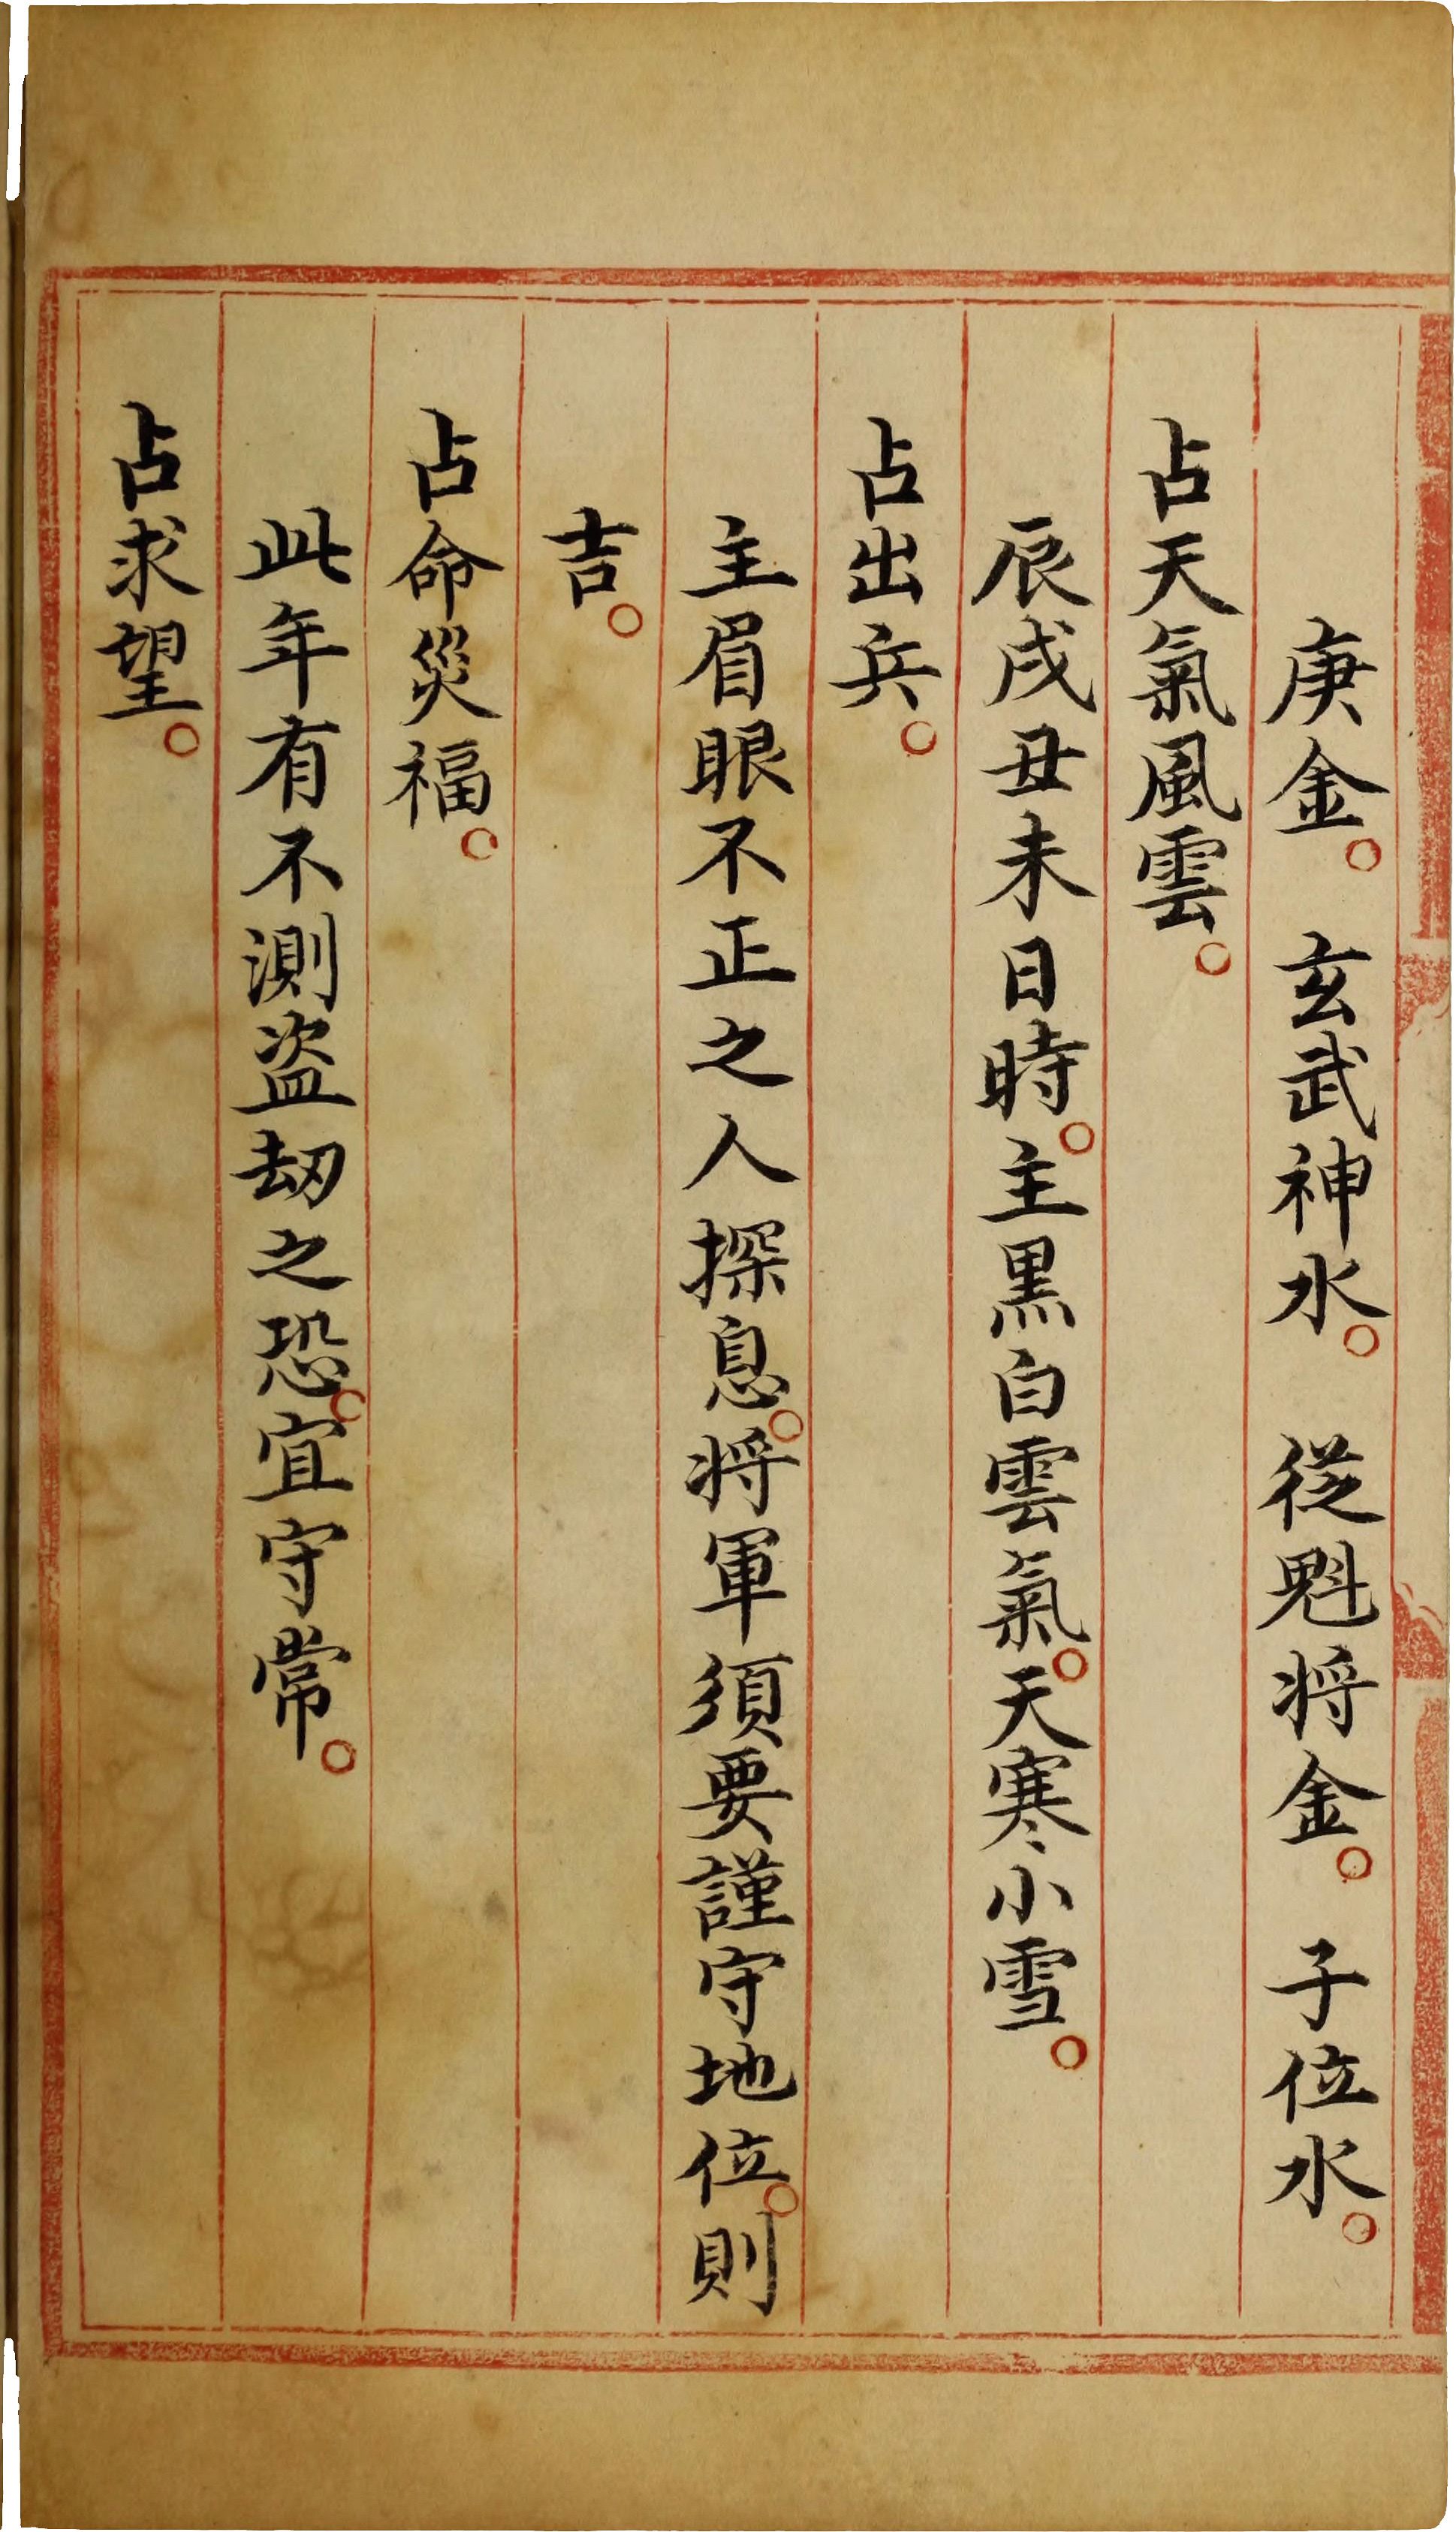 庚金。　玄武神水。　從魁將金。　子位水。
占天氣風雲。
辰戌丑未日時。主黑白雲氣。天寒小雪。
占出兵。
主眉眼不正之人探息。將軍須要謹守地位。則
吉。
占命災福。
此年有不測盜劫之恐。宜守常。
占求望。